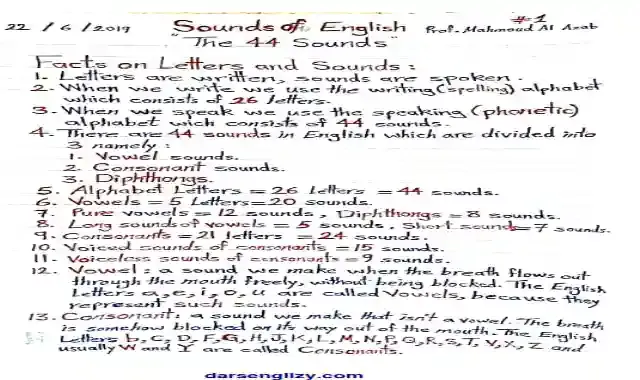 22 / 6 / 2019 Sounds of English Prof. Mahmoud Al Azab #1
"The 44 Sounds"
Facts on Letters and Sounds :
1. Letters are written, sounds are spoken.
2. When we write we use the writing (spelling) alphabet
which consists of 26 letters.
3. When we speak we use the speaking (phonetic)
alphabet wich consists of 44 sounds.
4. There are 44 sounds in English which are divided into
3 namely :
1. Vowel sounds.
2. Consonant sounds.
3. Diphthongs.
5. Alphabet Letters = 26 letters = 44 sounds.
6. Vowels = 5 Letters = 20 sounds.
7. Pure vowels = 12 sounds, Diphthongs = 8 sounds.
8. Long sounds of vowels = 5 sounds, Short sounds = 7 sounds.
9. Consonants = 21 letters = 24 sounds.
10. Voiced sounds of consonants = 15 sounds.
11. Voiceless sounds of consonants = 9 sounds.
12. Vowel : a sound we make when the breath flows out
through the mouth freely, without being blocked. The English
Letters a, e, i, o, u are called Vowels, because they
represent such sounds.
13. Consonant : a sound we make that isn't a vowel. The breath
is somehow blocked on its way out of the mouth. The English
Letters b, C, D, F, G, H, J, K, L, M, N, P, Q, R, S, T, V, X, Z and
usually W and Y are called Consonants.
darsenglizy.com